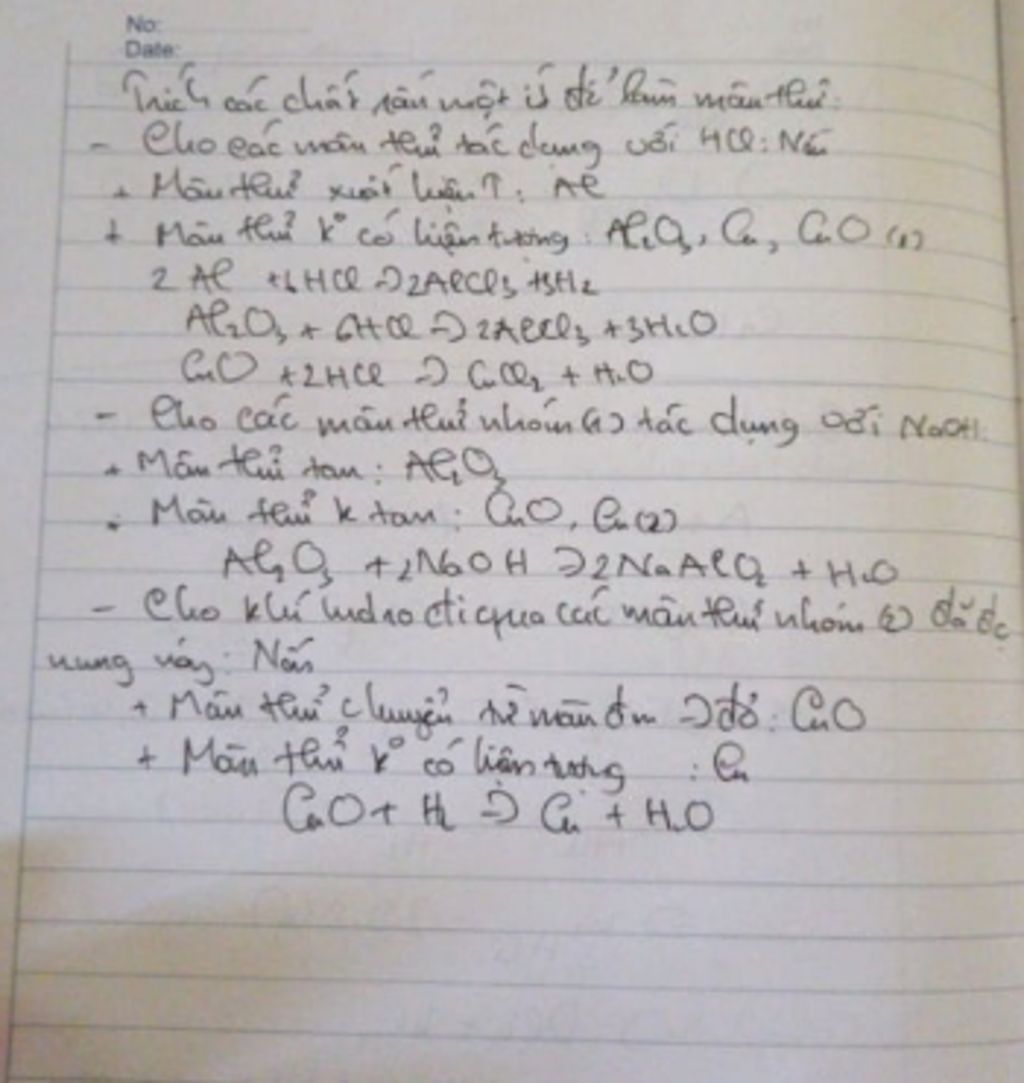 No:
Date:
Trích các chất rắn một ít để làm mẫu thử.
- Cho các mẫu thử tác dụng với HCl: Nếu
+ Mẫu thử xuất hiện ↑: Al
+ Mẫu thử k° có hiện tượng: Al2O3, Cu, CuO (1)
2Al + 6HCl → 2AlCl3 + 3H2
Al2O3 + 6HCl → 2AlCl3 + 3H2O
CuO + 2HCl → CuCl2 + H2O
- Cho các mẫu thử nhóm (1) tác dụng với NaOH:
+ Mẫu thử tan: Al2O3
+ Mẫu thử k tan: CuO, Cu (2)
Al2O3 + 2NaOH → 2NaAlO2 + H2O
- Cho khí hidro đi qua các mẫu thử nhóm (2) đã đc
nung nóng: Nếu
+ Mẫu thử chuyển từ màu đen → đỏ: CuO
+ Mẫu thử k° có hiện tượng : Cu
CuO + H2 → Cu + H2O